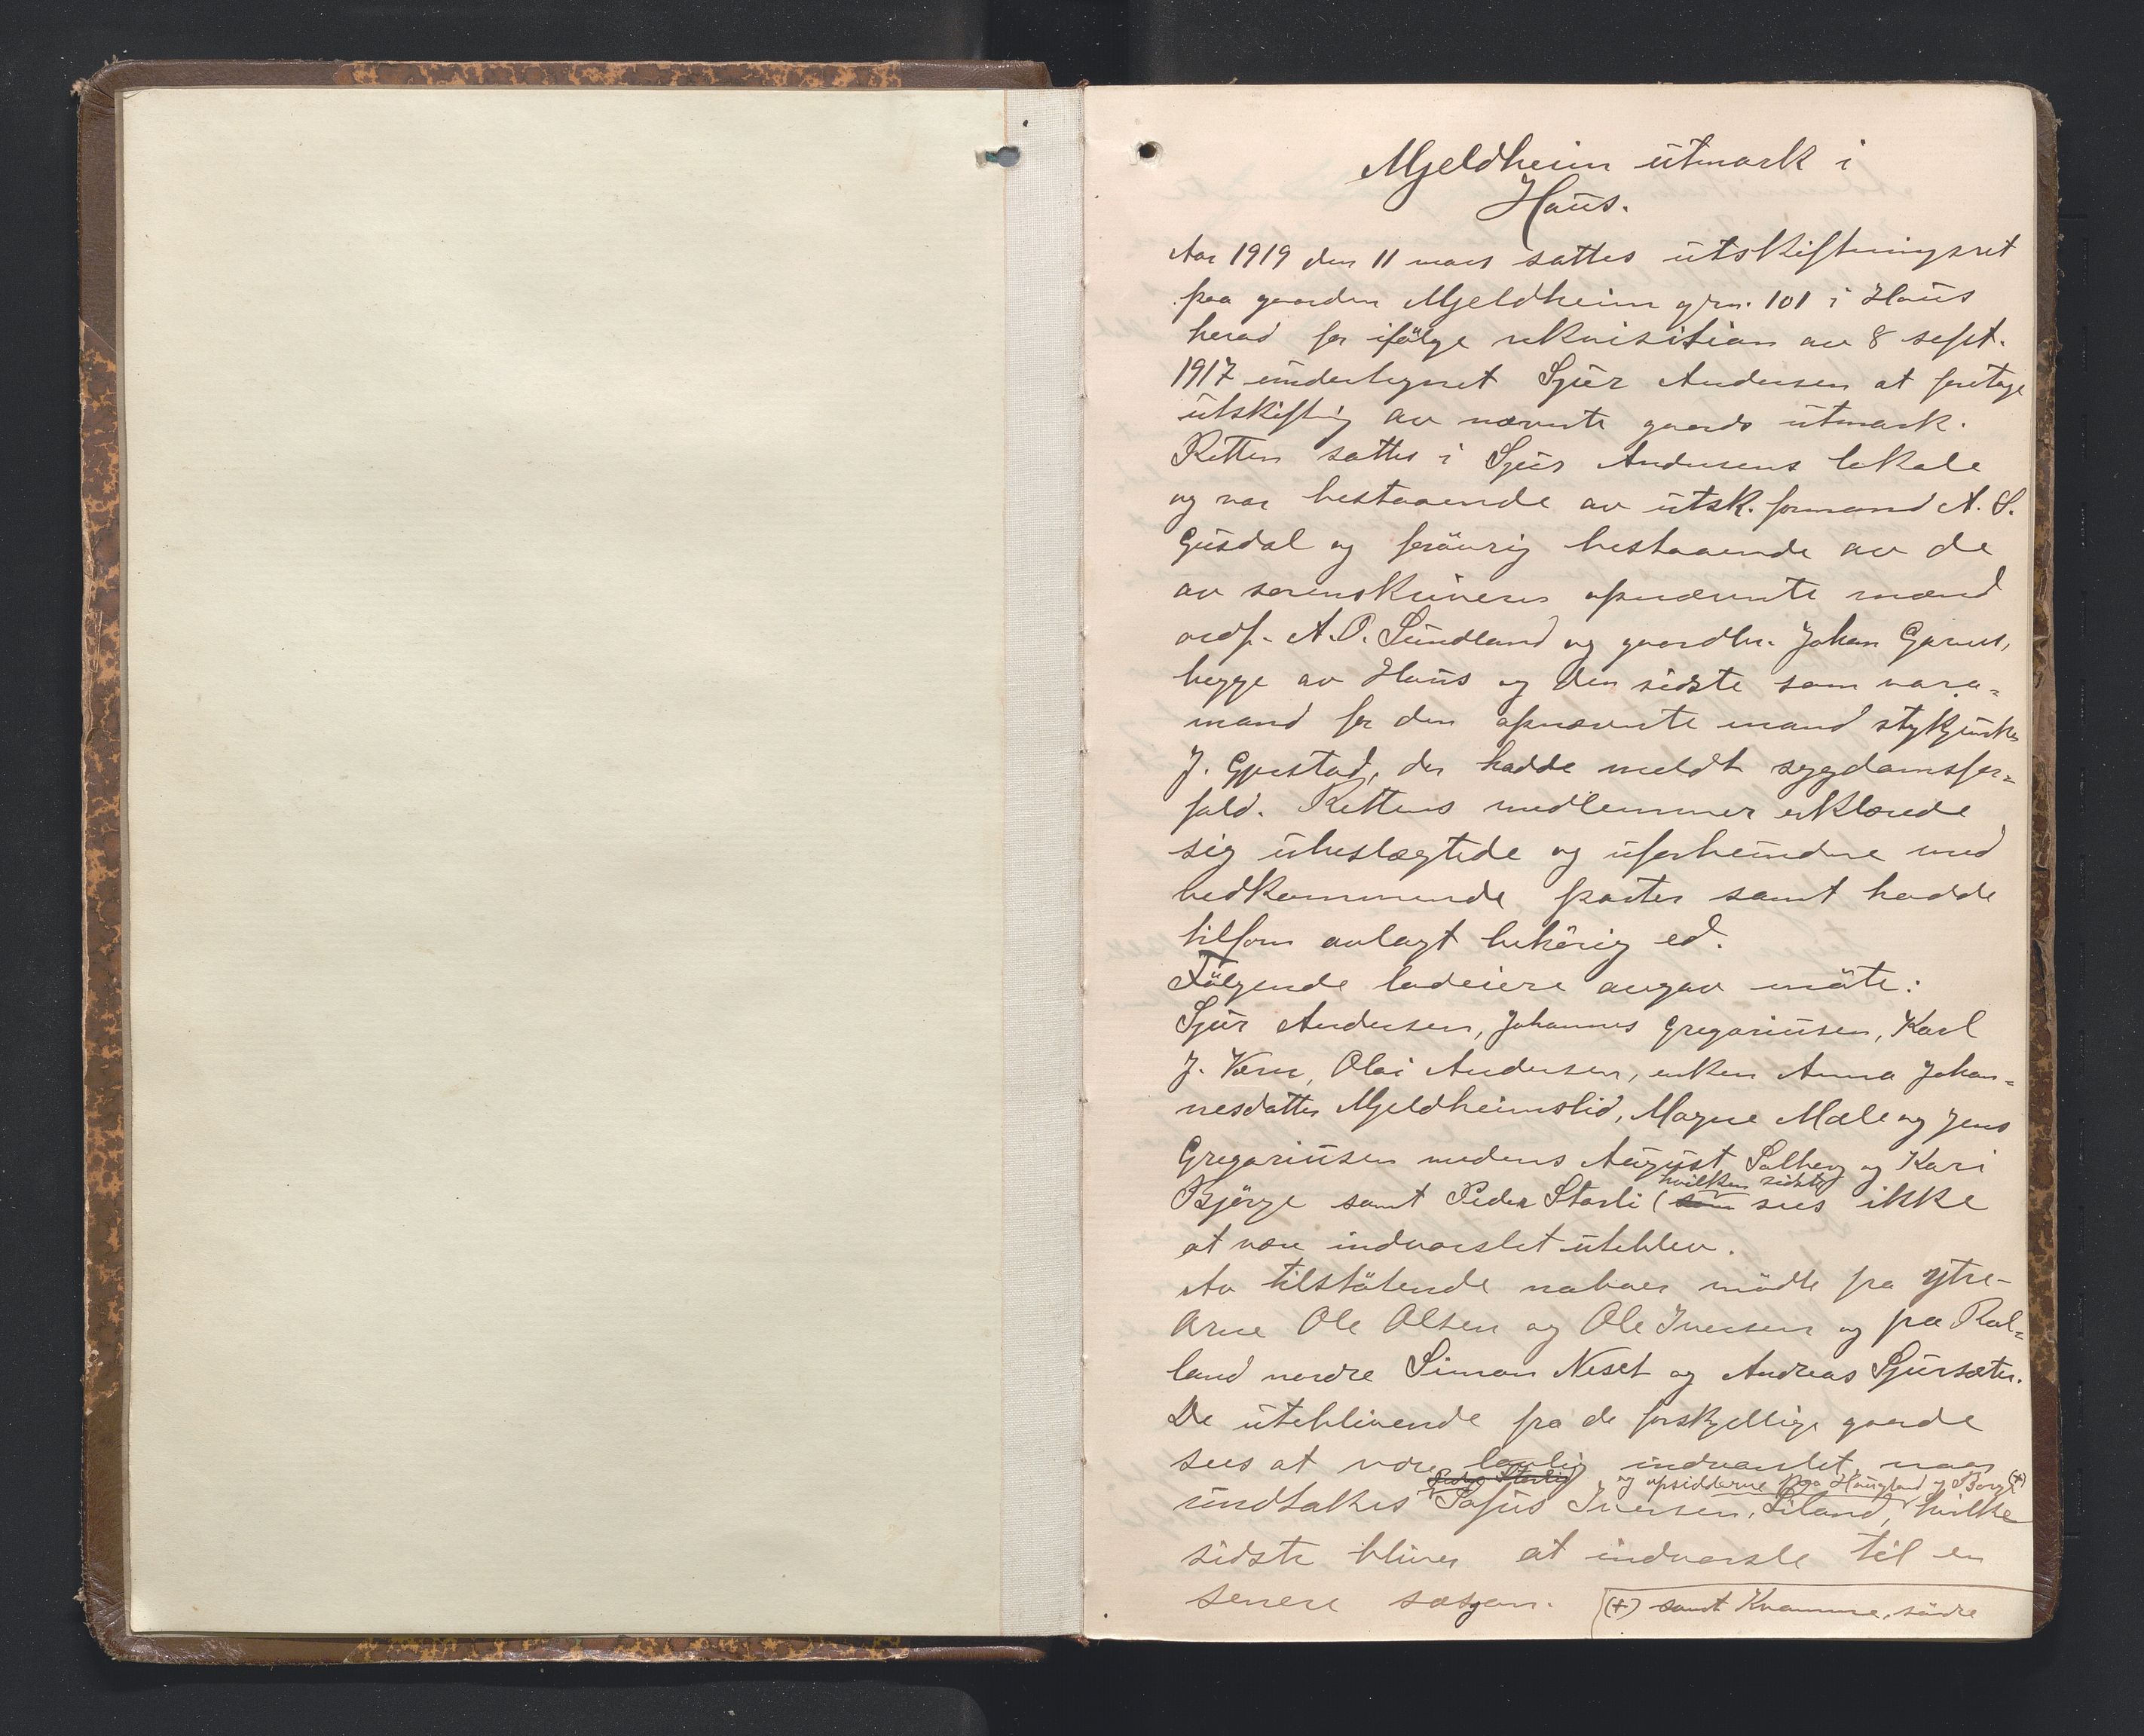 Mjeldheim utmark i
Haus.
Aar 1919 den 11 mars sattes utskiftningsret
paa gaarden Mjeldheim grn. 101 i Haus
herad for ifölge rekvisition av 8 sept.
1917 undertegnet Sjur Andersen at foretage
utskiftnig av nævnte gaards utmark.
Retten sattes i Sjur Andersens lokale
og var bestaaende av utsk. formand A. S.
Gusdal og forövrig bestaaende av de
av sorenskriveren opnævnte mænd
ordf. A. O. Sundland og gaardbr. Johan Garnes,
begge av Haus og den sidste som vara=
mand for den opnævnte mand stykjunker
J. Gjerstad, der hadde meldt sygdomsfor=
fald. Rettens medlemmer erklærede
sig ubeslægtede og uforbundne med
vedkommende parter samt hadde
tilforn avlagt behörig ed.
Fölgende lodeiere avgav möte:
Sjur Andersen, Johannes Gregoriusen, Karl
J. Vern, Olai Andersen, enken Anna Johan=
nesdatter Mjeldheimslid, Magne Mæle og Jens
Gregoriusen medens August Solberg og Kari
Björge samt Peder Starli (som hvilken sidste sees ikke
at være indvarslet uteblev.
Av tilstötende naboer mödte fra Ytre-
Arne Ole Olsen og Ole Iversen og fra Rol=
land nordre Simon Neset og Andreas Sjursæter.
De uteblivende fra de forskjellige gaarde
sees at være lovlig indvarslet, naar
undtakes Peder Starlid Sofus Iversen, Liland, og opsidderne paa Haugland og Borge (+) hvilke
sidste bliver at indvarsle til en
senere sasjon.
(+) samt Kvamme, söndre